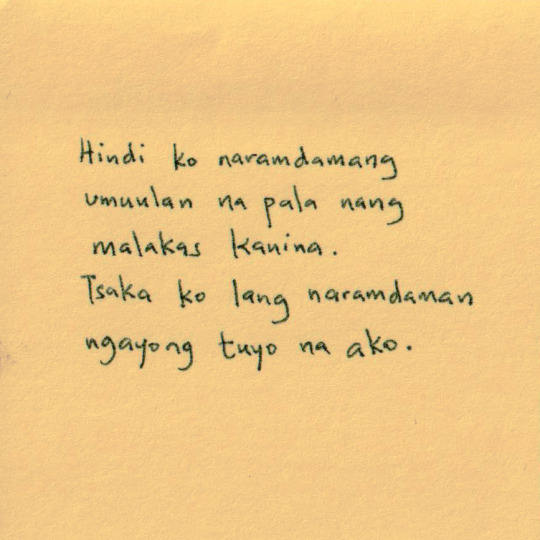 Hindi ko naramdamang
umuulan na pala nang
malakas kanina.
Tsaka ko lang naramdaman
ngayong tuyo na ako.